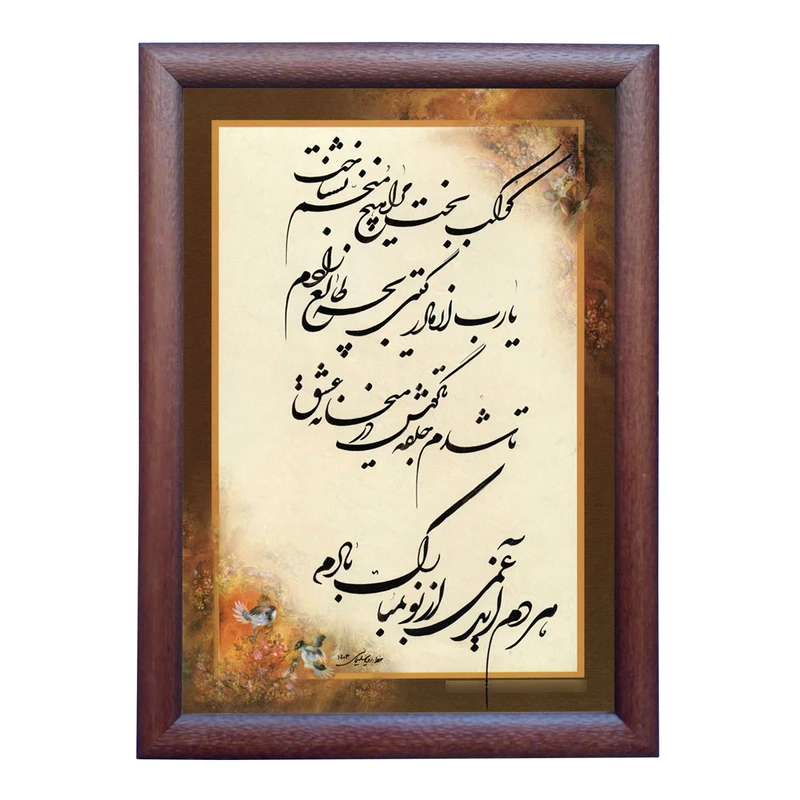 کوکب بخت مرا هیچ منجم نشناخت
یارب از مادر گیتی بچه طالع زادم
تا شدم حلقه بگوش در میخانه عشق
هر دم آید غمی از نو بمبارک بادم